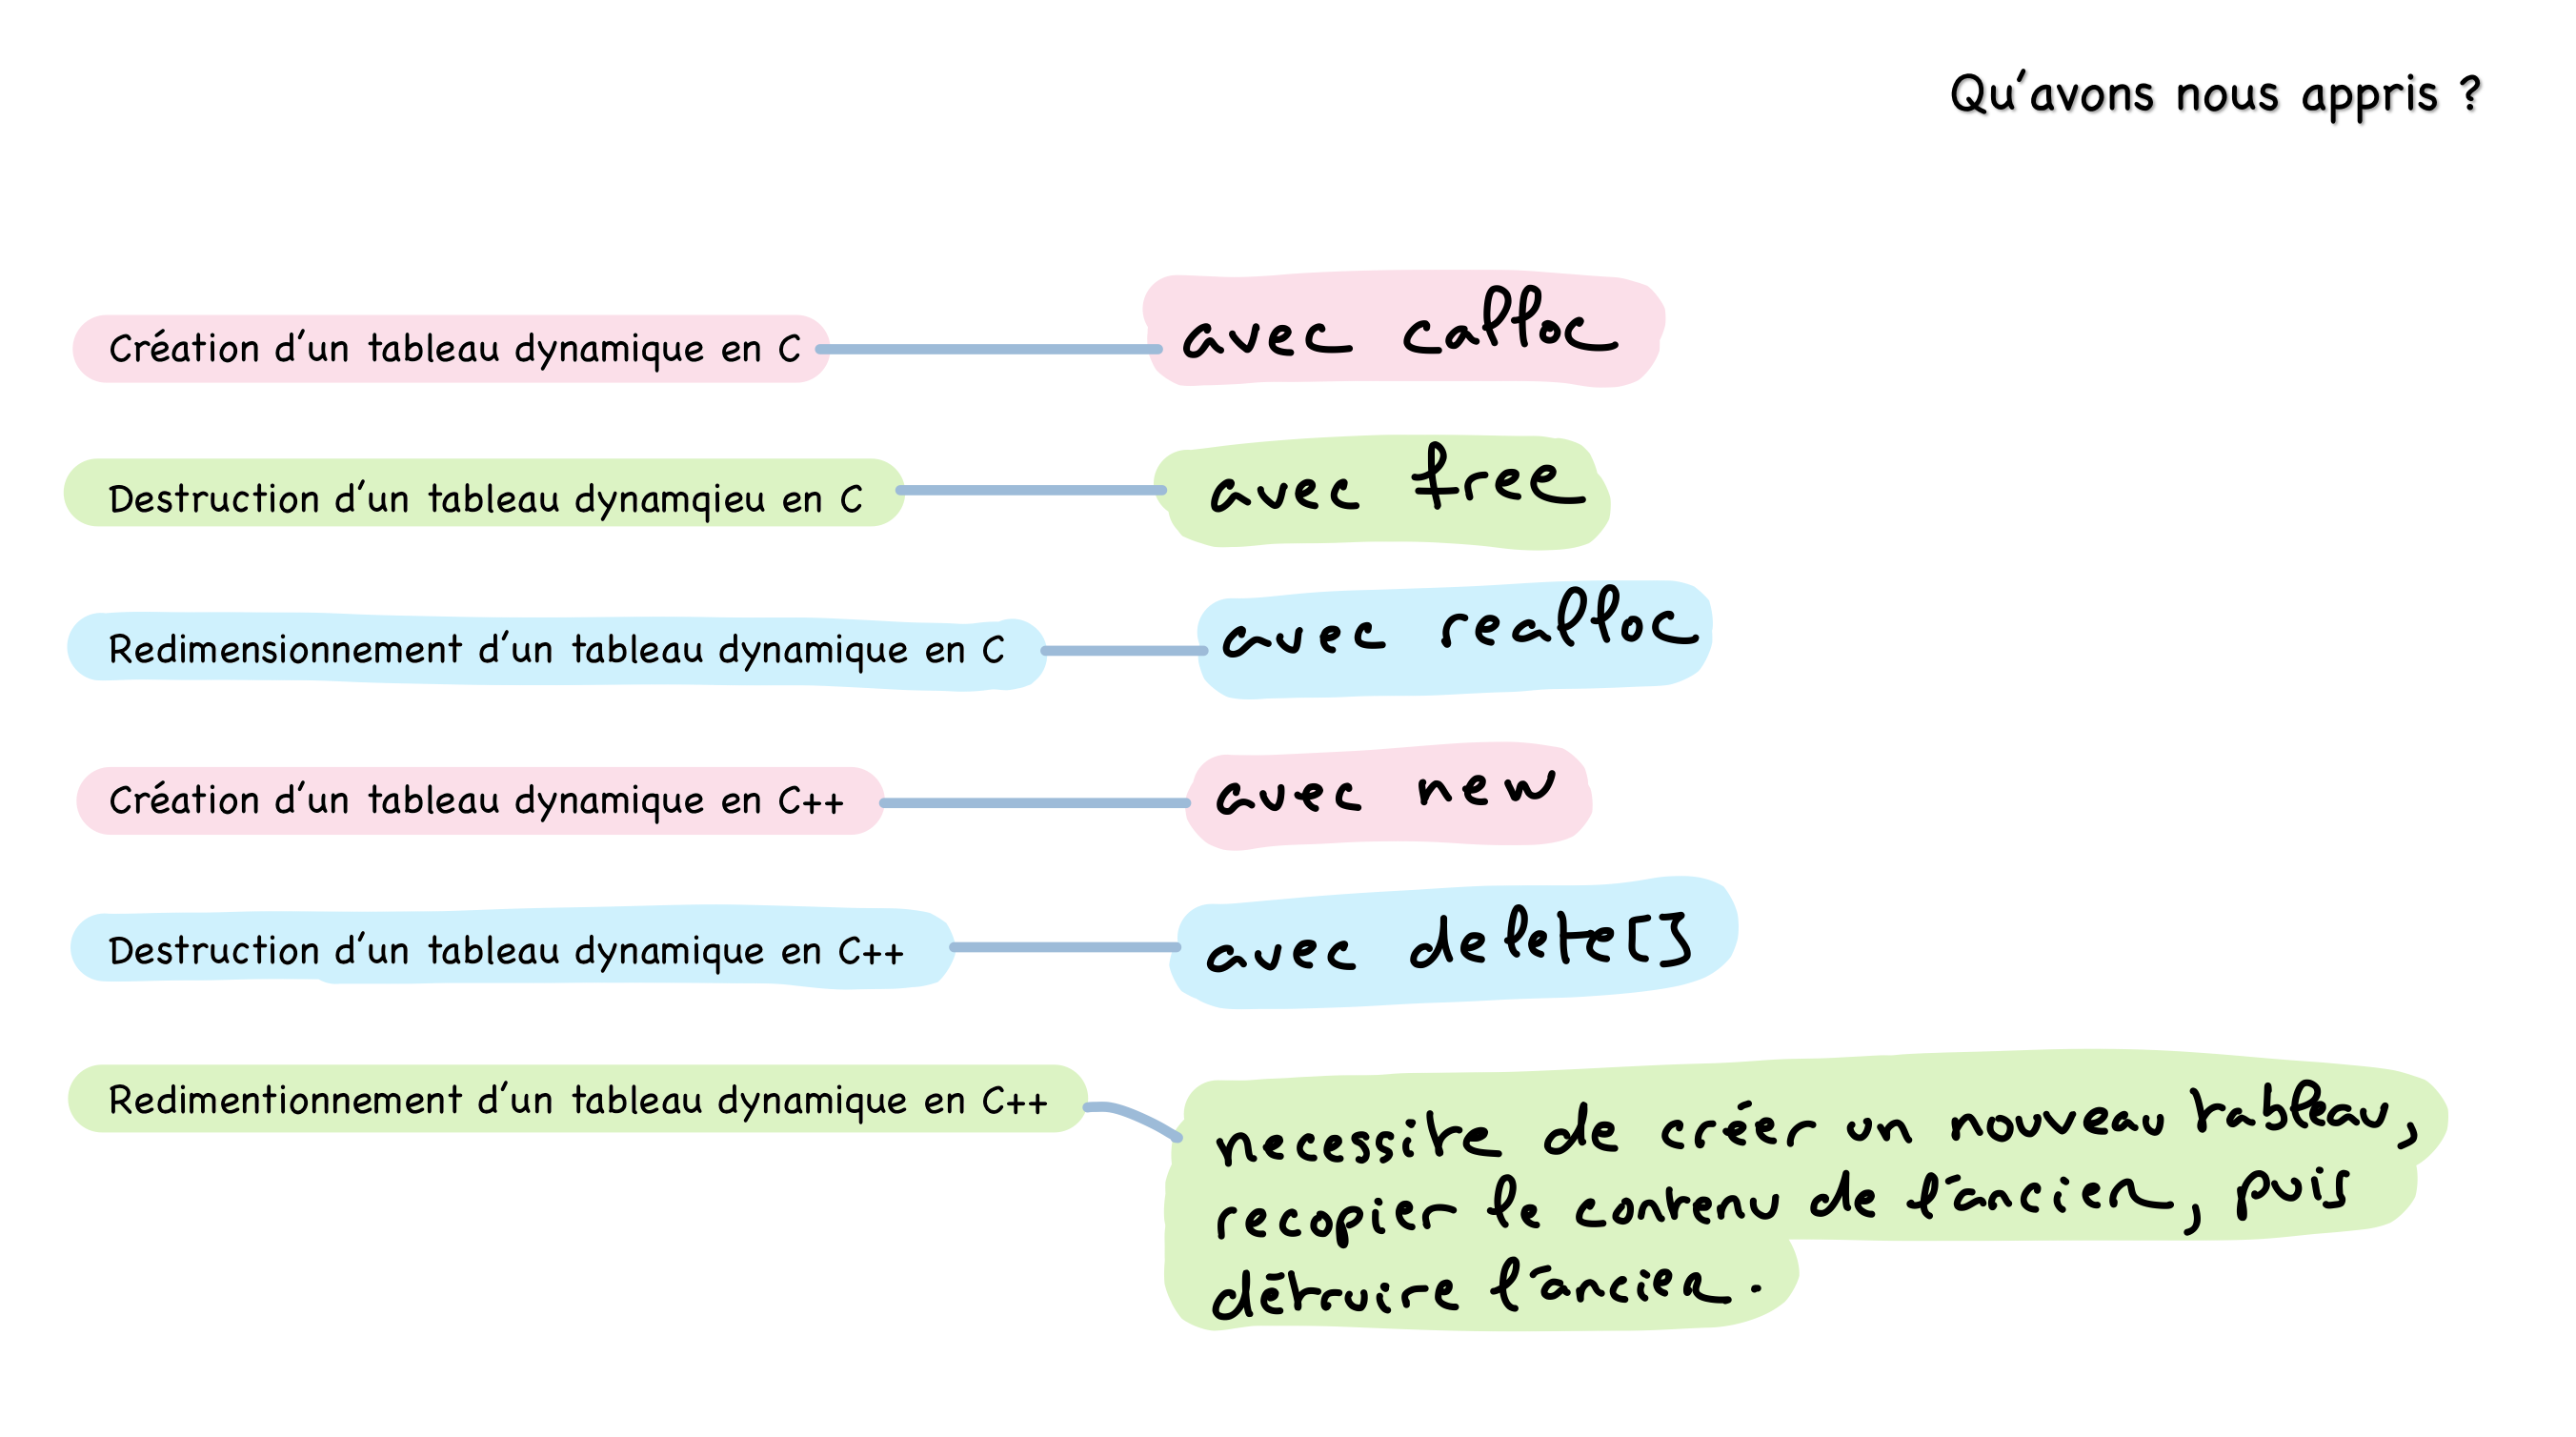 Qu'avons nous appris ?
Création d'un tableau dynamique en C avec calloc
Destruction d'un tableau dynamqieu en C avec free
Redimensionnement d'un tableau dynamique en C avec realloc
Création d'un tableau dynamique en C++ avec new
Destruction d'un tableau dynamique en C++ avec delete[]
Redimentionnement d'un tableau dynamique en C++
necessite de créer un nouveau tableau,
recopier le contenu de l'ancien, puis
détruire l'ancien.